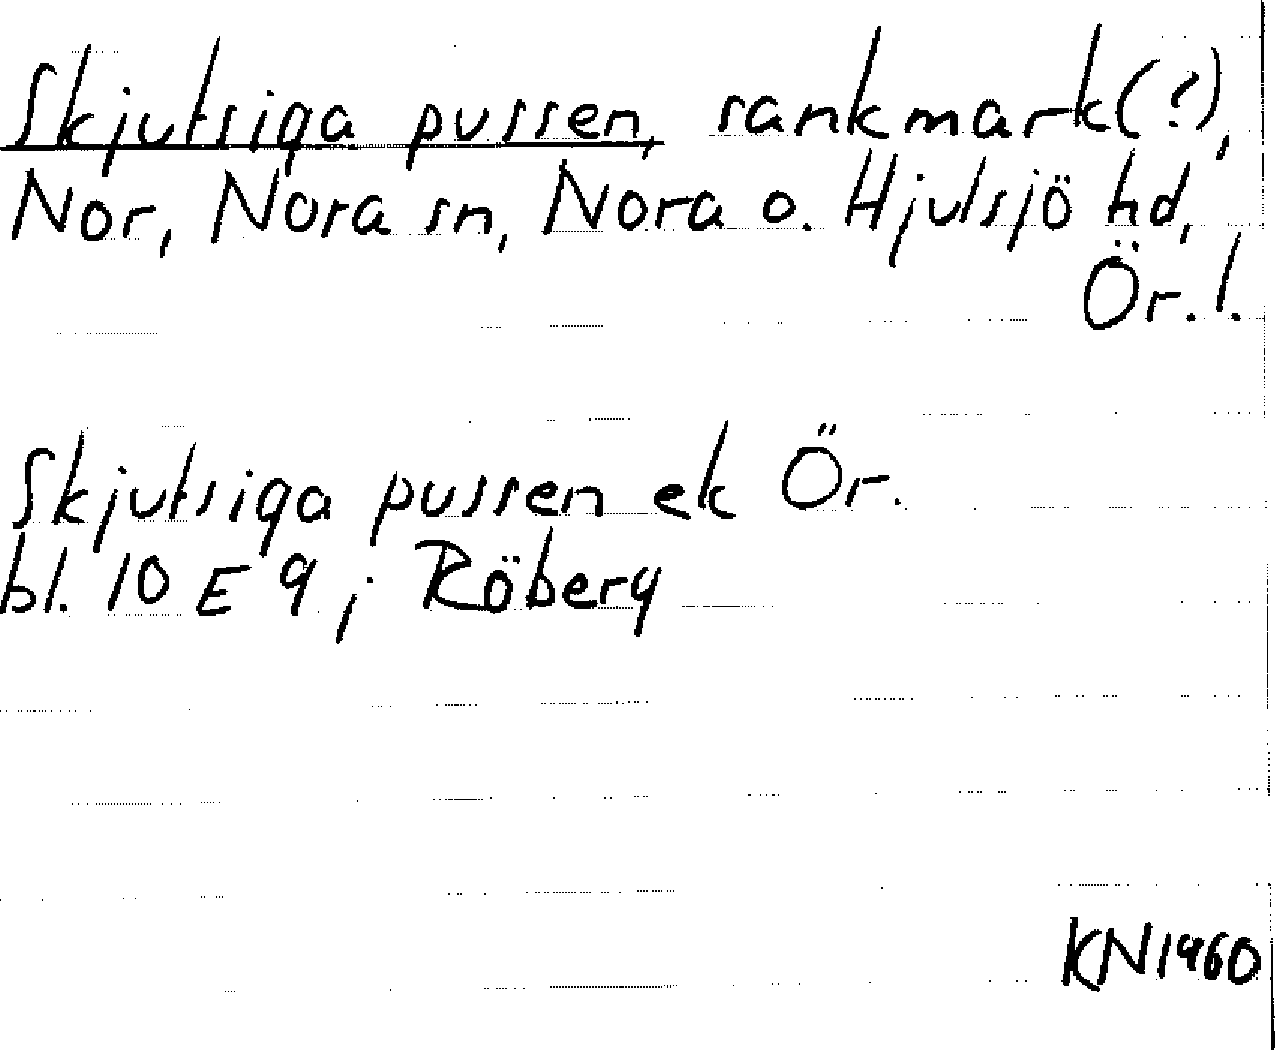 Skjutsiga pussen, sankmark(?),
Nor, Nora sn, Nora o. Hjulsjö hd,
Ör. l.
Skjutsiga pussen ek Ör.
bl. 10 E 9 ; Röberg
KN1960